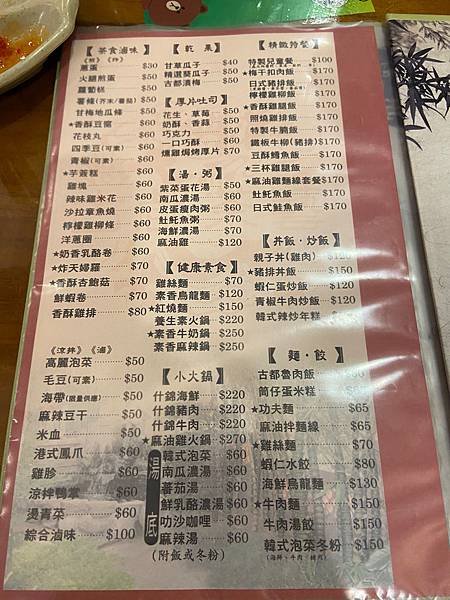 【茶食滷味】
《煎》《炸》
蔥蛋 $30
火腿煎蛋 $50
蘿蔔糕 $50
薯條(芥末/蕃茄) $50
甘梅地瓜條 $50
★香酥豆腐 $60
花枝丸 $60
四季豆(可素) $60
青椒(可素) $60
★芋簽糕 $60
雞塊 $60
辣味雞米花 $60
沙拉章魚燒 $60
檸檬雞柳條 $60
洋蔥圈 $60
★奶香乳酪卷 $60
★炸天婦羅 $60
★香酥杏鮑菇 $60
鮮蝦卷 $60
香酥雞排 $80
《涼拌》《滷》
高麗泡菜 $50
毛豆(可素) $50
海帶(限量供應) $50
麻辣豆干 $50
米血 $50
港式鳳爪 $60
雞胗 $60
涼拌鴨掌 $60
燙青菜 $60
綜合滷味 $100
【乾果】
甘草瓜子 $40
精選葵瓜子 $50
古都漬梅 $50
【厚片吐司】
花生、草莓 $50
奶酥、香蒜 $50
巧克力 $50
一口酥 $60
燻雞焗烤厚片 $70
【湯‧粥】
紫菜蛋花湯 $50
南瓜濃湯 $60
皮蛋瘦肉粥 $60
𩵚魠魚粥 $70
海鮮濃湯 $70
麻油雞 $120
【健康素食】
雞絲麵 $70
素香烏龍麵 $120
★紅燒麵 $150
養生素火鍋 $220
★素香牛奶鍋 $250
素香麻辣鍋 $250
【小火鍋】
什錦海鮮 $220
什錦豬肉 $220
什錦牛肉 $220
★麻油雞火鍋 $270
湯底
韓式泡菜 $60
南瓜濃湯 $60
蕃茄湯 $60
鮮乳酪濃湯 $60
叻沙咖哩 $60
麻辣湯 $60
(附飯或冬粉)
【精緻特餐】
特製兒童餐 $100
★梅干扣肉飯 $170
日式豬排飯 $170
檸檬雞柳飯 $170
★香酥雞腿飯 $170
照燒雞排飯 $170
特製牛腩飯 $170
鐵板牛柳(豬排) $170
豆酥鱈魚飯 $170
★三杯雞腿飯 $170
★麻油雞麵線套餐 $170
𩵚魠魚飯 $170
日式鮭魚飯 $170
【丼飯‧炒飯】
親子丼(雞肉) $120
★豬排丼飯 $150
蝦仁蛋炒飯 $120
青椒牛肉炒飯 $120
韓式辣炒年糕 $120
【麵‧餃】
古都魯肉飯 $50
筒仔蛋米糕 $60
★功夫麵 $65
麻油拌麵線 $65
★雞絲麵 $70
蝦仁水餃 $80
海鮮烏龍麵 $130
★牛肉麵 $150
牛肉湯餃 $150
韓式泡菜冬粉 $150